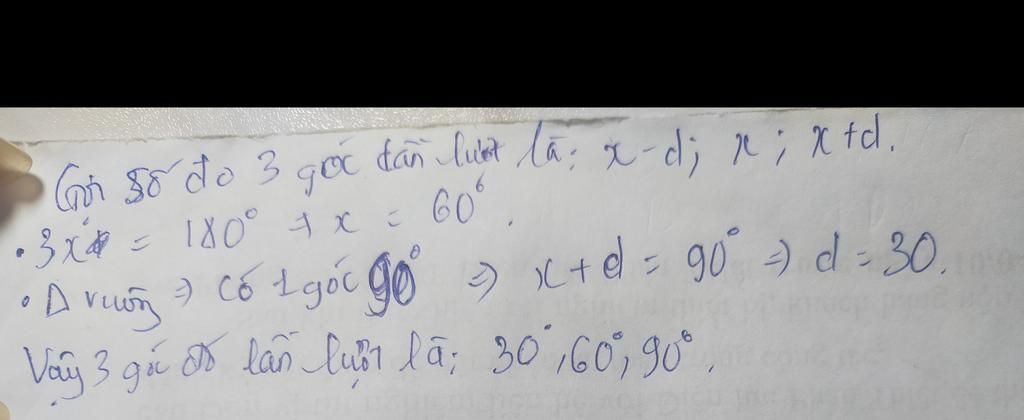 Gọi số đo 3 góc lần lượt là: x-d; x; x+d.
• 3x = 180° → x = 60°.
• Δ vuông ⇒ có 1 góc 90° ⇒ x+d = 90° ⇒ d = 30.
Vậy 3 góc đó lần lượt là: 30°, 60°, 90°.